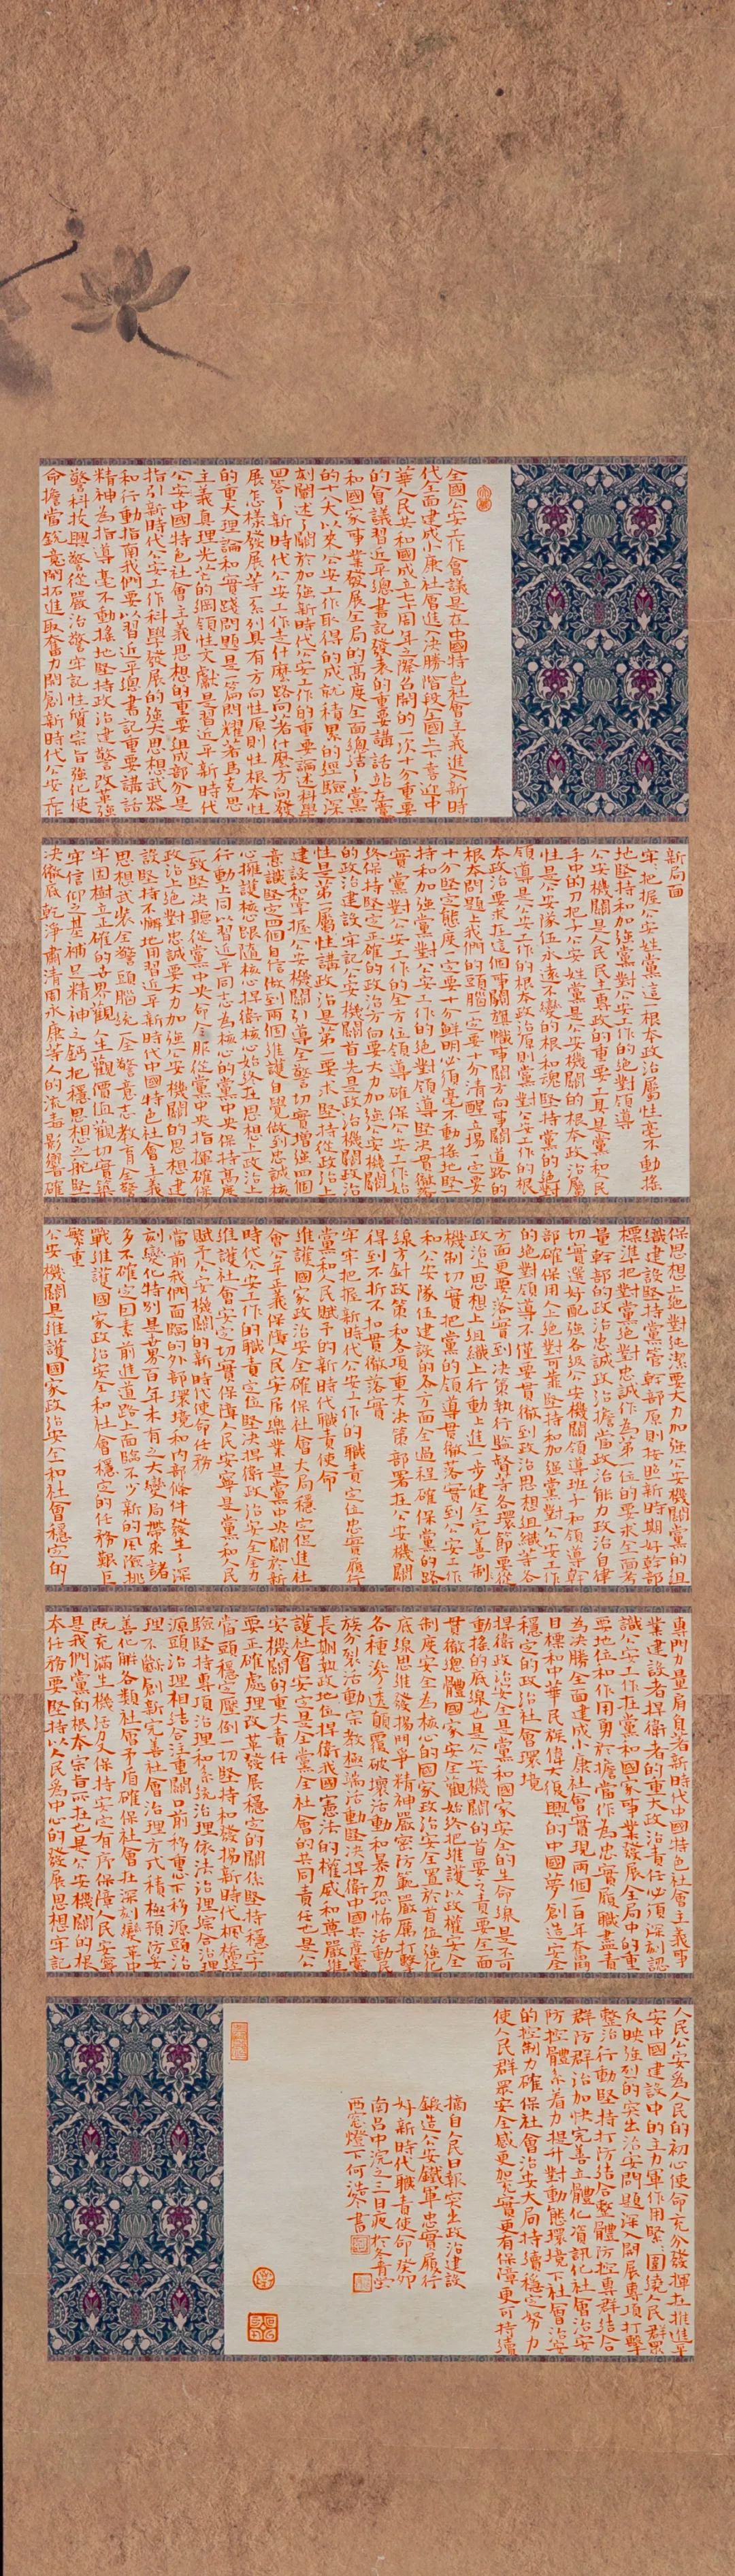 全國公安工作會議是在中國特色社會主義進入新時
代全面建成小康社會進入決勝階段全國上下喜迎中
華人民共和國成立七十周年之際召開的一次十分重要
的會議習近平總書記發表的重要講話站在黨
和國家事業發展全局的高度全面總結了黨
的十八大以來公安工作取得的成就積累的經驗深
刻闡述了關於加強新時代公安工作的重要論述科學
回答了新時代公安工作走什麼路向着什麼方向發
展怎樣發展等系列具有方向性原則性根本性
的重大理論和實踐問題是一篇閃耀着馬克思
主義真理光芒的綱領性文獻是習近平新時代
中國特色社會主義思想的重要組成部分是
指引新時代公安工作科學發展的強大思想武器
和行動指南我們要以習近平總書記重要講話
精神為指導毫不動搖地堅持政治建警改革強
警科技興警從嚴治警牢記性質宗旨強化使
命擔當銳意開拓進取奮力開創新時代公安工作
新局面
牢把握公安姓黨這一根本政治屬性毫不動搖
地堅持和加強黨對公安工作的絕對領導
公安機關是人民民主專政的重要工具是黨和人民
手中的刀把子公安姓黨是公安機關的根本政治屬
性是公安隊伍永遠不變的根和魂堅持黨的絕對
領導是公安工作的根本政治原則黨對公安工作的根
本政治要求在這個事關旗幟事關方向事關道路的
根本問題上我們的頭腦一定要十分清醒立場一定要
十分堅定態度一定要十分鮮明必須毫不動搖地堅
持和加強黨對公安工作的絕對領導堅決貫徹落
實黨對公安工作的全方位領導確保公安工作始
終保持堅定正確的政治方向要大力加強公安機關
的政治建設牢記公安機關首先是政治機關政治
性是第一屬性講政治是第一要求堅持從政治上
建設和掌握公安機關引導全警切實增強四個
意識堅定四個自信做到兩個維護自覺做到忠誠核
心擁護核心跟隨核心捍衛核心始終在思想上政治上
行動上同以習近平同志為核心的黨中央保持高度
一致堅決聽從黨中央命令服從黨中央指揮確保
政治上絕對忠誠要大力加強公安機關的思想建
設堅持不懈地用習近平新時代中國特色社會主義
思想武裝全警頭腦統一全警意志教育全警
牢固樹立正確的世界觀人生觀價值觀切實築
牢信仰之基補足精神之鈣把穩思想之舵堅
決徹底乾淨肅清周永康等人的流毒影響確
保思想上絕對純潔要大力加強公安機關黨的組
織建設堅持黨管幹部原則按照新時期好幹部
標準把對黨絕對忠誠作為第一位的要求全面考
量幹部的政治忠誠政治擔當政治能力政治自律
切實選好配強各級公安機關領導班子和領導幹
部確保用人上絕對可靠堅持和加強黨對公安工作
的絕對領導不僅要貫徹到政治思想組織等各
方面更要落實到決策執行監督等各環節要從
政治上思想上組織上行動上進一步健全完善制
機制切實把黨的領導貫徹落實到公安工作
和公安隊伍建設的各方面全過程確保黨的路
線方針政策和各項重大決策部署在公安機關
得到不折不扣貫徹落實
牢牢把握新時代公安工作的職責定位忠實履行
黨和人民賦予的新時代職責使命
維護國家政治安全確保社會大局穩定促進社
會公平正義保障人民安居樂業是黨中央關於新
時代公安工作的職責定位堅決捍衛政治安全全力
維護社會安定切實保障人民安寧是黨和人民
賦予公安機關的新時代使命任務
當前我們面臨的外部環境和內部條件發生了深
刻變化特別是世界百年未有之大變局帶來諸
多不確定因素前進道路上面臨不少新的風險挑
戰維護國家政治安全和社會穩定的任務艱巨
繁重
公安機關是維護國家政治安全和社會穩定的
專門力量肩負着新時代中國特色社會主義事
業建設者捍衛者的重大政治責任必須深刻認
識公安工作在黨和國家事業發展全局中的重
要地位和作用勇於擔當作為忠實履職盡責
為決勝全面建成小康社會實現兩個一百年奮鬥
目標和中華民族偉大復興的中國夢創造安全
穩定的政治社會環境
捍衛政治安全是黨和國家安全的生命線是不可
動搖的底線也是公安機關的首要職責要全面
貫徹總體國家安全觀始終把維護以政權安全
制度安全為核心的國家政治安全置於首位強化
底線思維發揚鬥爭精神嚴密防範嚴厲打擊
各種滲透顛覆破壞活動和暴力恐怖活動民
族分裂活動宗教極端活動堅決捍衛中國共產黨
長期執政地位捍衛我國憲法的權威和尊嚴維
護社會安定是全黨全社會的共同責任也是公
安機關的重大責任
要正確處理改革發展穩定的關係堅持穩字
當頭穩定壓倒一切堅持和發揚新時代楓橋經
驗堅持專項治理和系統治理依法治理綜合治理
源頭治理相結合注重關口前移重心下移源頭治
理不斷創新完善社會治理方式積極預防妥
善化解各類社會矛盾確保社會在深刻變革中
既充滿生機活力又保持安定有序保障人民安寧
是我們黨的根本宗旨所在也是公安機關的根
本任務要堅持以人民為中心的發展思想牢記
人民公安為人民的初心使命充分發揮在推進平
安中國建設中的主力軍作用緊緊圍繞人民群眾
反映強烈的突出治安問題深入開展專項打擊
整治行動堅持打防結合整體防控專群結合
群防群治加快完善立體化資訊化社會治安
防控體系着力提升對動態環境下社會治安
的控制力確保社會治安大局持續穩定努力
使人民群眾安全感更加充實更有保障更可持續
摘自人民日報突出政治建設
鍛造公安鐵軍忠實履行
好新時代職責使命癸卯
南呂中浣之三日夜於冬青堂
西窗燈下何詩書